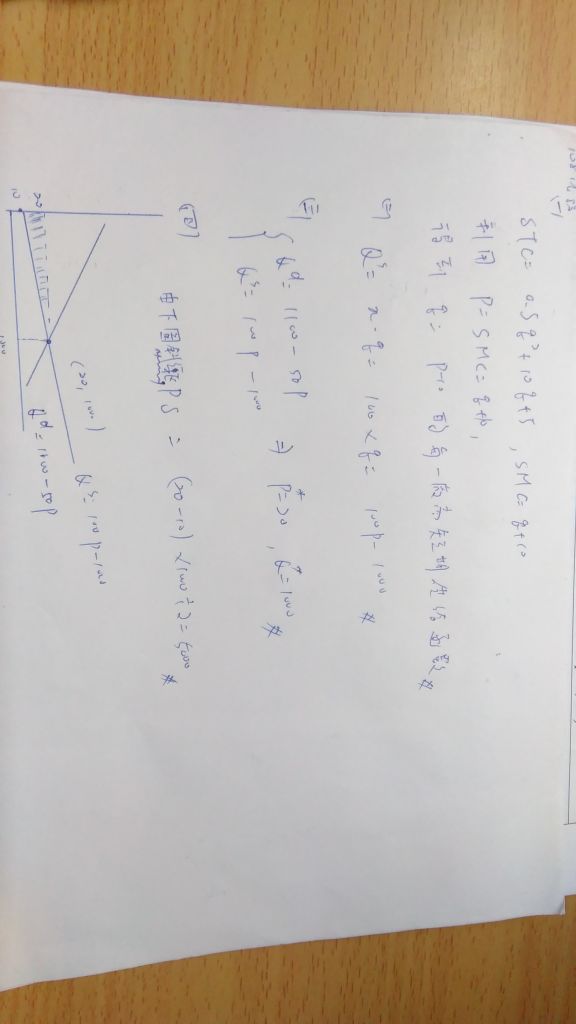 (一)
STC = 0.5q²+10q+5 , SMC= q+10
利用 P=SMC= q+10,
得到 q= P-10 即每一廠商短期供給函數 #
(二) Qˢ= n·q= 100×q= 100P-1000 #
(三) { Qᵈ= 1100-50P
Qˢ= 100P-1000 ⇒ P*=20 , Q*=1000 #
(四) 由下圖 PS = (20-10)×1000÷2=5000 #
20
10
(20, 1000)
Qˢ=100P-1000
Qᵈ=1100-50P